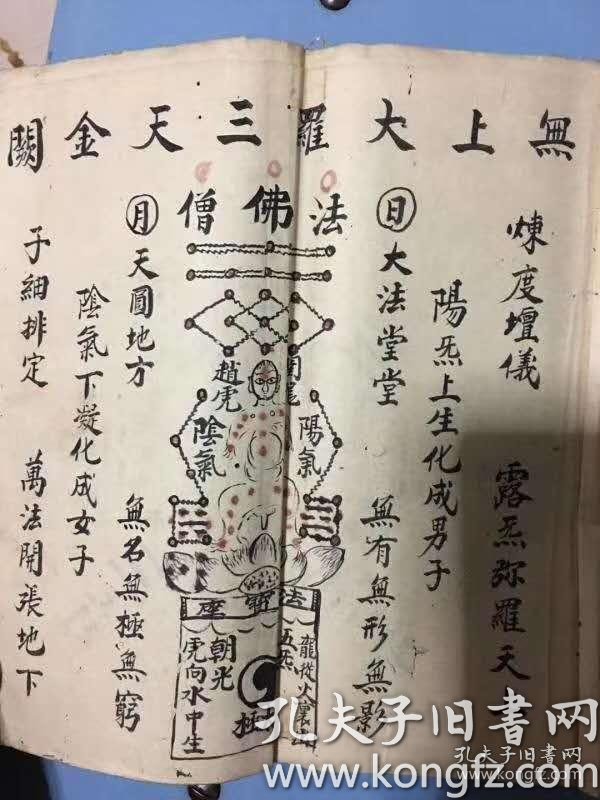 無上大羅三天金闕
法佛僧
煉度壇儀 露炁弥羅天
陽炁上生化成男子
日 大法堂堂 無有無形無影
陽氣
趙虎
陰氣
法寶座
龍從火裏
五炁
極
朝光
虎向水中生
月 天圓地方 無名無極無窮
陰氣下凝化成女子
子細排定 萬法開張地下
孔夫子旧書网
www.kongfz.com
孔夫子旧書网
www.kongfz.com